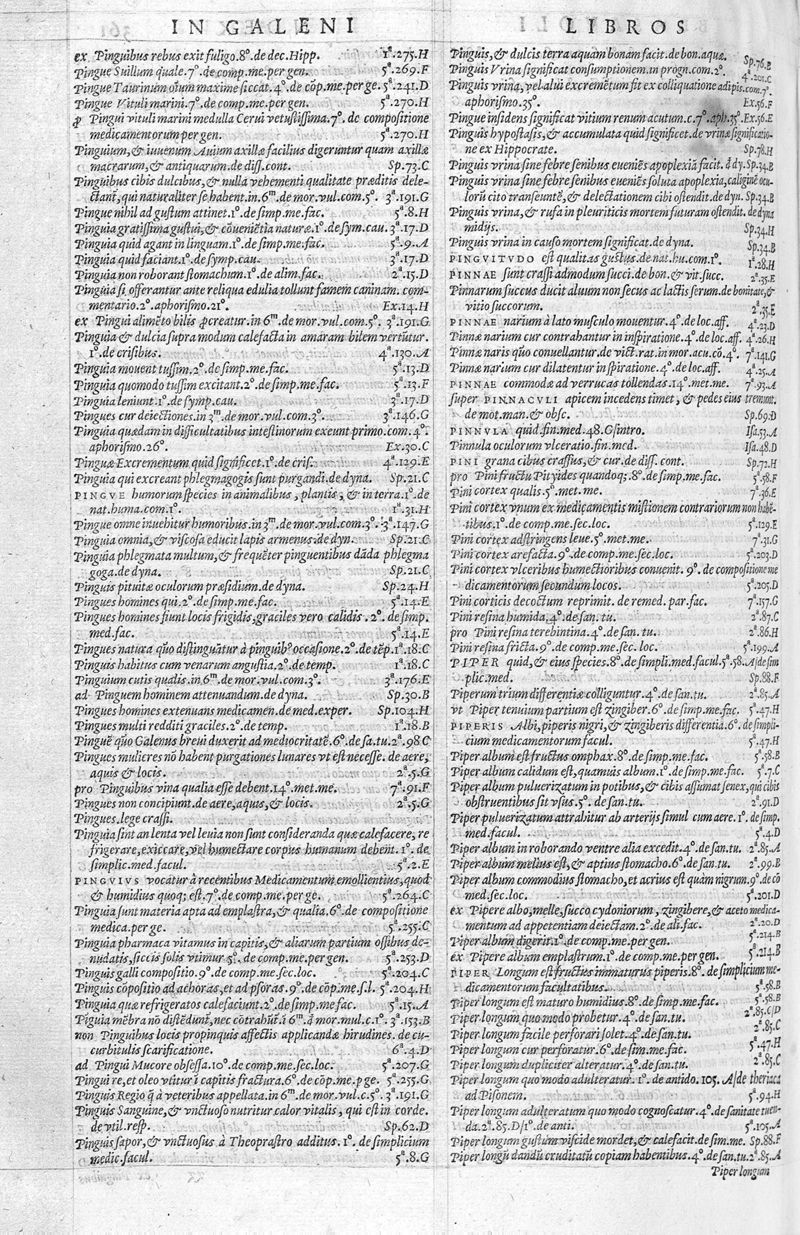 IN GALENI
LIBROS
ex Pinguibus rebus exit fuligo.8º.de dec.Hipp. 1ª.275.H
Pingue Suillum quale.7º.de comp.me.per gen. 5ª.269.F
Pingue Taurinum oĩum maxime siccat.4º.de cõp.me.per ge. 5ª.241.D
Pingue Vituli marini.7º.de comp.me.per gen. 5ª.270.H
ꝓ Pingui vituli marini medulla Cerui vetustissima.7º. de compositione
medicamentorum per gen. 5ª.270.H
Pinguium,& iuuenum Auium axillæ facilius digeruntur quam axillæ
macrarum,& antiquarum.de diss.cont. Sp.73.C
Pinguibus cibis dulcibus,& nulla vehementi qualitate præditis dele-
ctant, qui naturaliter se habent.in.6ᵐ.de mor.vul.com.5º. 3ª.191.G
Pingue nihil ad gustum attinet.1º.de simp.me.fac. 5ª.8.H
Pinguia gratissima gustui,& cõueniẽtia naturæ.1º.de sym.cau. 3ª.17.D
Pinguia quid agant in linguam.1º.de simp.me.fac. 5ª.9.A
Pinguia quid faciant.1º.de symp.cau. 3ª.17.D
Pinguia non roborant stomachum.1º.de alim.fac. 2ª.15.D
Pinguia si offerantur ante reliqua edulia tollunt famem caninam. com-
mentario.2º.aphorismo.21º. Ex.14.H
ex Pingui alimẽto bilis ꝓcreatur.in 6ᵐ.de mor.vul.com.5º. 3ª.191.G
Pinguia & dulcia supra modum calefacta in amaram bilem vertũtur.
1º.de crisibus. 4ª.130.A
Pinguia mouent tussim.2º.de simp.me.fac. 5ª.13.D
Pinguia quomodo tussim excitant.2º.de simp.me.fac. 5ª.13.F
Pinguia leniunt.1º.de symp.cau. 3ª.17.D
Pingues cur deiectiones.in 3ᵐ.de mor.vul.com.3º. 3ª.146.G
Pinguia quædam in difficultatibus intestinorum exeunt primo.com.4º.
aphorismo.26º. Ex.30.C
Pinguæ Excrementum quid significet.1º.de cris. 4ª.129.E
Pinguia qui excreant phlegmagogis sunt purgandi.de dyna. Sp.21.C
PINGVE humorum species in animalibus, plantis, & in terra.1º.de
nat.huma.com.1º. 1ª.31.H
Pingue omne inuehitur humoribus.in 3ᵐ.de mor.vul.com.3º. 3ª.147.G
Pinguia omnia,& viscosa educit lapis armenus.de dyn. Sp.21.C
Pinguia phlegmata multum,& frequẽter pinguentibus dãda phlegma
goga.de dyna. Sp.21.C
Pinguis pituitæ oculorum præsidium.de dyna. Sp.24.H
Pingues homines qui.2º.de simp.me.fac. 5ª.14.E
Pingues homines fiunt locis frigidis,graciles vero calidis.2º.de simp.
med.fac. 5ª.14.E
Pingues natura q̃uo distinguãtur à pinguibº occasione.2º.de tẽp. 1ª.18.C
Pinguis habitus cum venarum angustia.2º.de temp. 1ª.18.C
Pinguium cutis qualis.in.6ᵐ.de mor.vul.com.3º. 3ª.176.E
ad Pinguem hominem attenuandum.de dyna. Sp.30.B
Pingues homines extenuans medicamen.de med.exper. Sp.104.H
Pingues multi redditi graciles.2º.de temp. 1ª.18.B
Pinguẽ q̃uo Galenus breui duxerit ad mediocritatẽ.6º.de sa.tu. 2ª.98 C
Pingues mulieres nõ habent purgationes lunares vt est necesse.de aere,
aquis & locis. 2ª.5.G
pro Pinguibus vina qualia esse debent.14º.met.me. 7ª.91.F
Pingues non concipiunt.de aere,aquis,& locis. 2ª.5.G
Pingues.lege crassi.
Pinguia sint an lenta vel leuia non sunt consideranda quæ calefacere, re
frigerare,exiccare,vel humectare corpus humanum debent. 1º.de
simplic.med.facul. 5ª.2.E
PINGVIVS vocatur à recentibus Medicamentum emollientius,quod
& humidius quoq; est.7º.de comp.me.per ge. 5ª.264.C
Pinguia sunt materia apta ad emplastra,& qualia.6º.de compositione
medica.per ge. 5ª.255.C
Pinguia pharmaca vitamus in capitis,& aliarum partium ossibus de-
nudatis,siccis solis vtimur 3º.de comp.me.per gen. 5ª.253.D
Pinguis galli compositio.9º.de comp.me.sec.loc. 5ª.204.C
Pinguis cõpositio ad achoras,et ad psoras.9º.de cõp.me.s.l. 5ª.204.H
Pinguia quæ refrigeratos calefaciunt.2º.de simp.me fac. 5ª.15.A
Pĩguia mẽbra nõ distẽdunt,nec cõtrahũt.ĩ 6ᵐ.d mor.mul.c.1º. 3ª.153.B
non Pinguibus locis propinquis affectis applicandæ hirudines. de cu-
curbitulis scarificatione. 6ª.4.D
ad Pingui Mucore obsessa.10º.de comp.me.sec.loc. 5ª.207.G
Pingui re,et oleo vtitur ĩ capitis fractura.6º.de cõp.me.pge. 5ª.255.G
Pinguis Regio q̃ à veteribus appellata.in 6ᵐ.de mor.vul.c.5º. 3ª.191.G
Pinguis Sanguine,& vnctuoso nutritur calor vitalis, qui est in corde.
de vtil.resp. Sp.62.D
Pinguis sapor,& vnctuosus à Theoprastro additus. 1º.de simplicium
medic.facul. 5ª.8.G
Pinguis,& dulcis terra aquam bonam facit.de bon.aquæ. Sp.76.B
Pinguis Vrina significat consumptionem.in progn.com.2º. 4ª.201.C
Pinguis vrina,vel alui excremẽtum fit ex colliquatione adipis.com.7º.
aphorismo.35º. Ex.56.F
Pingue insidens significat vitium renum acutum.c.7º.aph.35º. Ex.56.E
Pinguis hypostasis,& accumulata quid significet.de vrinæ significatio-
ne ex Hippocrate. Sp.78.H
Pinguis vrina sine febre senibus eueniẽs apoplexiã facit.d dy. Sp.34.B
Pinguis vrina sine febre senibus eueniẽs soluta apoplexia,caliginẽ ocu-
lorũ cito transeuntẽ,& delectationem cibi ostendit.de dyn. Sp.34.B
Pinguis vrina,& rufa in pleuriticis mortem futuram ostendit. de dyna
midijs. Sp.34.H
Pinguis vrina in causo mortem significat.de dyna. Sp.34.B
PINGVITVDO est qualitas gustus.de nat.hu.com.1º. 1ª.28.H
PINNAE sunt crassi admodum succi.de bon.& vit.succ. 2ª.35.E
Pinnarum succus ducit aluum non secus ac lactis serum.de bonitate,&
vitio succorum. 2ª.35.E
PINNAE narium à lato musculo mouentur.4º.de loc.aff. 4ª.23.D
Pinnæ narium cur contrahantur in inspiratione.4º.de loc.aff. 4ª.26.H
Pinnæ naris q̃uo conuellantur.de vict.rat.in mor.acu.cõ.4º. 7ª.141.G
Pinnæ narium cur dilatentur in spiratione.4º.de loc.aff. 4ª.25.A
PINNAE commodæ ad verrucas tollendas.14º.met.me. 7ª.93.A
super PINNACVLI apicem incedens timet,& pedes eius tremunt.
de mot.man.& obsc. Sp.69.D
PINNVLA quid.fin.med.48.G.Intro. Isa.53.A
Pinnula oculorum vlceratio.fin.med. Isa.48.D
PINI grana cibus crassus,& cur.de diss.cont. Sp.72.H
pro Pini fructu Pityides quandoq;.8º.de simp.me.fac. 5ª.58.F
Pini cortex qualis.5º.met.me. 7ª.36.E
Pini cortex vnum ex medicamentis mistionem contrariorum non habẽ-
tibus.1º.de comp.me.sec.loc. 5ª.129.E
Pini cortex adstringens leue.5º.met.me. 7ª.31.G
Pini cortex arefacta.9º.de comp.me.sec.loc. 5ª.203.D
Pini cortex vlceribus humectioribus conuenit. 9º.de compositione me
dicamentorum secundum locos. 5ª.205.D
Pini corticis decoctum reprimit.de remed.par.fac. 7ª.157.G
Pini resina humida.4º.de san.tu. 2ª.87.C
pro Pini resina terebintina.4º.de san.tu. 2ª.86.H
Pini resina fricta.9º.de comp.me.sec.loc. 5ª.199.A
PIPER quid,& eius species.8º.de simpli.med.facul.5ª.58.A/de sim
plic.med. Sp.88.F
Piperum trium differentiæ colliguntur.4º.de san.tu. 2ª.85.A
vt Piper tenuium partium est zingiber.6º.de simp.me.fac. 5ª.47.H
PIPERIS Albi,piperis nigri,& zingiberis differentia.6º.de simpli-
cium medicamentorum facul. 5ª.47.H
Piper album est fructus omphax.8º.de simp.me.fac. 5ª.58.B
Piper album calidum est,quamuis album.1º.de simp.me.fac. 5ª.7.C
Piper album puluerizatum in potibus,& cibis assumat senex,qui cibis
obstruentibus sit vsus.5º.de san.tu. 2ª.91.D
Piper puluerizatum attrahitur ab arterijs simul cum aere.1º.de simp.
med.facul. 5ª.4.D
Piper album in roborando ventre alia excedit.4º.de san.tu. 2ª.85.A
Piper album melius est,& aptius stomacho.6º.de san.tu. 2ª.99.B
Piper album commodius stomacho,et acrius est quàm nigrum.9º.de cõ
med.sec.loc. 5ª.201.D
ex Pipere albo,melle,succo cydoniorum, zingibere,& aceto medica-
mentum ad appetentiam deiectam.2º.de ali.fac. 2ª.20.D
Piper album digerit.1º.de comp.me.per gen. 5ª.214.B
ex Pipere album emplastrum.1º.de comp.me.per gen. 5ª.214.B
PIPER Longum est fructus immaturus piperis.8º.de simplicium me-
dicamentorum facultatibus. 5ª.58.B
Piper longum est maturo humidius.8º.de simp.me.fac. 5ª.58.B
Piper longum quo modo probetur.4º.de san.tu. 2ª.85.C/D
Piper longum facile perforari solet.4º.de san.tu. 2ª.85.C
Piper longum cur perforatur.6º.de sim.me.fac. 5ª.47.H
Piper longum dupliciter alteratur.4º.de san.tu. 2ª.85.C
Piper longum quo modo adulteratur. 1º.de antido. 105. A/de theriaca
ad Pisonem. 5ª.94.H
Piper longum adulteratum quo modo cognoscatur.4º.de sanitate tuen-
da.2ª.85.D/1º.de anti. 5ª.105.A
Piper longum gustum viscide mordet,& calefacit.de sim.me. Sp.88.F
Piper longũ dandũ cruditatũ copiam habentibus.4º.de san.tu.2ª.85.A
Piper longum